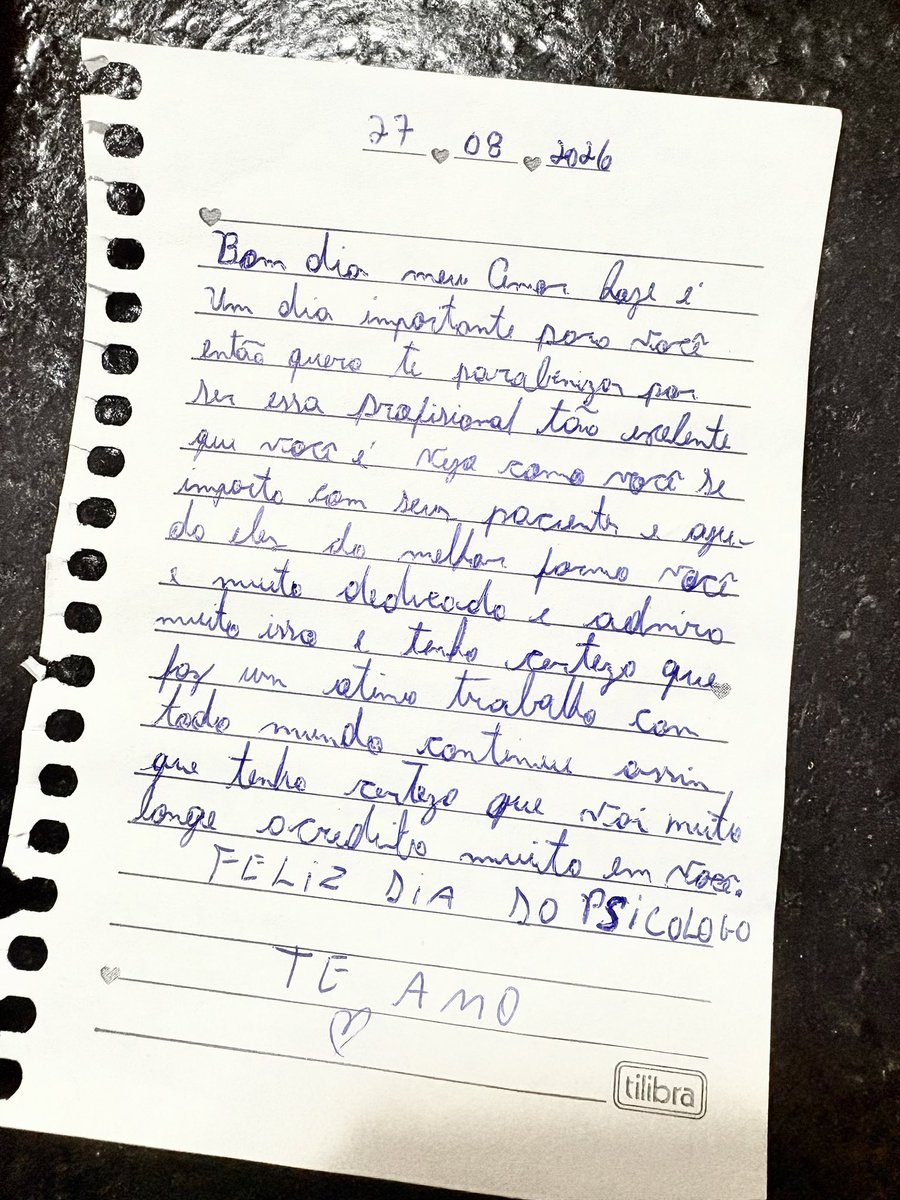 27 08 2026
Bom dia meu Amor hoje é
Um dia importante para você
então quero te parabenizar por
ser essa profisional tão exelente
que você é Vejo como você se
importa com seus pacientes e aju-
da eles da melhor forma você
e muito dedicada e admiro
muito isso e tenho certeza que
faz um otimo trabalho com
todo mundo continue assim
que tenho certeza que vai muito
longe acredito muito em você.
FELIZ DIA DO PSICOLOGO
TE AMO
tilibra